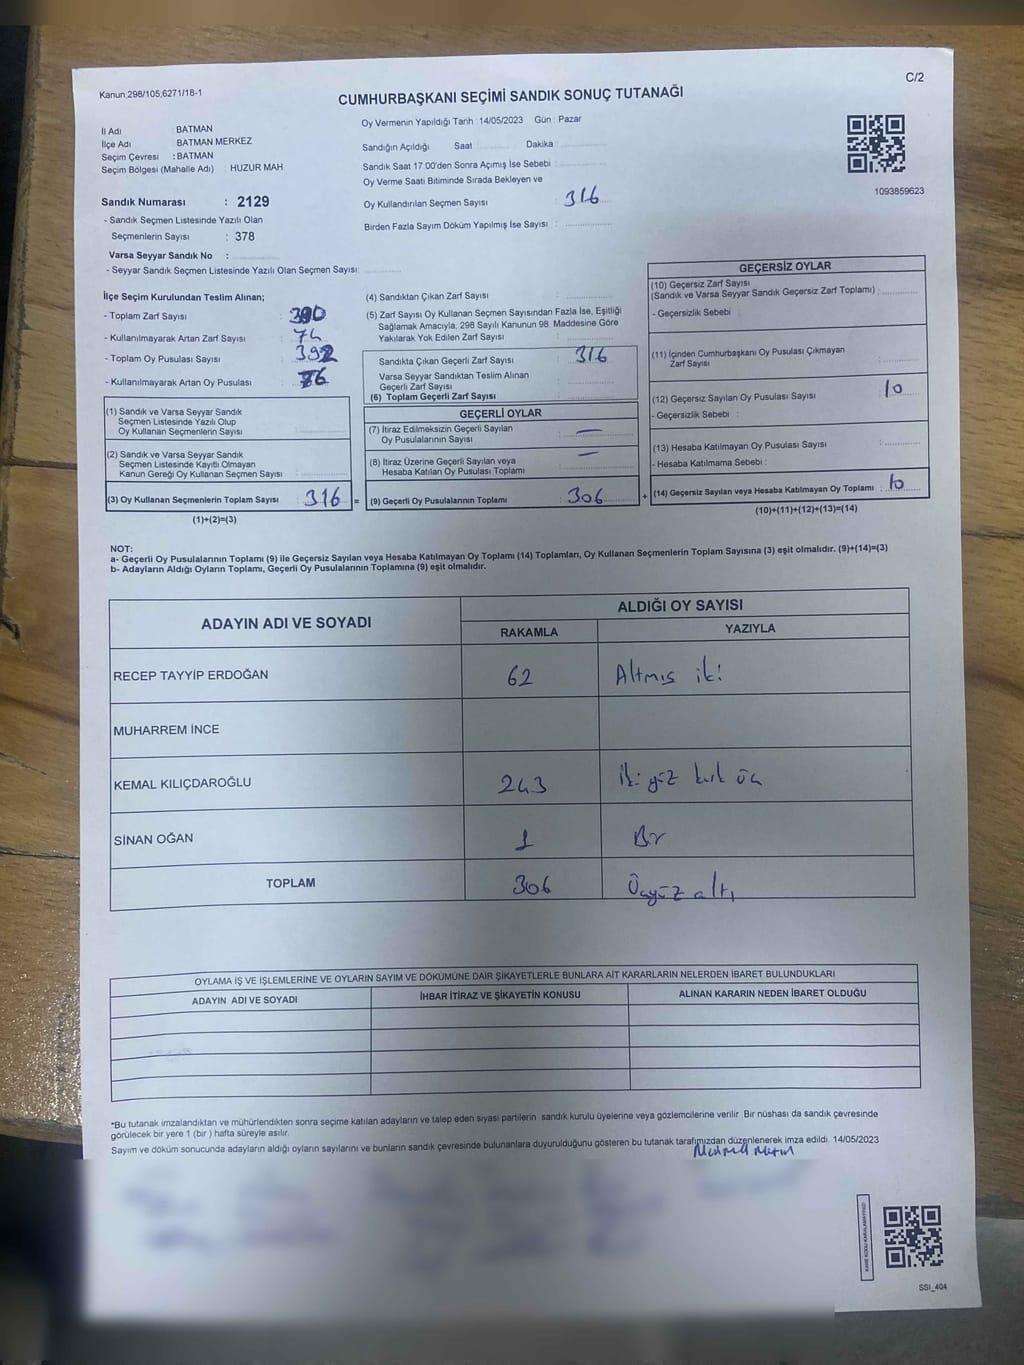 C/2
Kanun;298/105,6271/18-1
CUMHURBAŞKANI SEÇİMİ SANDIK SONUÇ TUTANAĞI
İl Adı : BATMAN
İlçe Adı : BATMAN MERKEZ
Seçim Çevresi : BATMAN
Seçim Bölgesi (Mahalle Adı) : HUZUR MAH
Sandık Numarası : 2129
- Sandık Seçmen Listesinde Yazılı Olan
Seçmenlerin Sayısı : 378
Varsa Seyyar Sandık No :
- Seyyar Sandık Seçmen Listesinde Yazılı Olan Seçmen Sayısı:
Oy Vermenin Yapıldığı Tarih : 14/05/2023 Gün : Pazar
Sandığın Açıldığı Saat Dakika :
Sandık Saat 17:00'den Sonra Açılmış İse Sebebi :
Oy Verme Saati Bitiminde Sırada Bekleyen ve
Oy Kullandırılan Seçmen Sayısı : 316
Birden Fazla Sayım Döküm Yapılmış İse Sayısı :
1093859623
İlçe Seçim Kurulundan Teslim Alınan;
- Toplam Zarf Sayısı : 390
- Kullanılmayarak Artan Zarf Sayısı : 74
- Toplam Oy Pusulası Sayısı : 392
- Kullanılmayarak Artan Oy Pusulası : 76
(1) Sandık ve Varsa Seyyar Sandık
Seçmen Listesinde Yazılı Olup
Oy Kullanan Seçmenlerin Sayısı :
(2) Sandık ve Varsa Seyyar Sandık
Seçmen Listesinde Kayıtlı Olmayan
Kanun Gereği Oy Kullanan Seçmen Sayısı :
(3) Oy Kullanan Seçmenlerin Toplam Sayısı : 316 =
(1)+(2)=(3)
(4) Sandıktan Çıkan Zarf Sayısı :
(5) Zarf Sayısı Oy Kullanan Seçmen Sayısından Fazla İse, Eşitliği
Sağlamak Amacıyla, 298 Sayılı Kanunun 98. Maddesine Göre
Yakılarak Yok Edilen Zarf Sayısı :
Sandıkta Çıkan Geçerli Zarf Sayısı : 316
Varsa Seyyar Sandıktan Teslim Alınan
Geçerli Zarf Sayısı :
(6) Toplam Geçerli Zarf Sayısı :
GEÇERLİ OYLAR
(7) İtiraz Edilmeksizin Geçerli Sayılan
Oy Pusulalarının Sayısı : —
(8) İtiraz Üzerine Geçerli Sayılan veya
Hesaba Katılan Oy Pusulası Toplamı : —
(9) Geçerli Oy Pusulalarının Toplamı : 306 +
GEÇERSİZ OYLAR
(10) Geçersiz Zarf Sayısı
(Sandık ve Varsa Seyyar Sandık Geçersiz Zarf Toplamı) :
- Geçersizlik Sebebi :
(11) İçinden Cumhurbaşkanı Oy Pusulası Çıkmayan
Zarf Sayısı :
(12) Geçersiz Sayılan Oy Pusulası Sayısı : 10
- Geçersizlik Sebebi :
(13) Hesaba Katılmayan Oy Pusulası Sayısı :
- Hesaba Katılmama Sebebi :
(14) Geçersiz Sayılan veya Hesaba Katılmayan Oy Toplamı : 10
(10)+(11)+(12)+(13)=(14)
NOT:
a- Geçerli Oy Pusulalarının Toplamı (9) ile Geçersiz Sayılan veya Hesaba Katılmayan Oy Toplamı (14) Toplamları, Oy Kullanan Seçmenlerin Toplam Sayısına (3) eşit olmalıdır. (9)+(14)=(3)
b- Adayların Aldığı Oyların Toplamı, Geçerli Oy Pusulalarının Toplamına (9) eşit olmalıdır.
ADAYIN ADI VE SOYADI ALDIĞI OY SAYISI
RAKAMLA YAZIYLA
RECEP TAYYİP ERDOĞAN 62 Altmış iki
MUHARREM İNCE
KEMAL KILIÇDAROĞLU 243 iki yüz kırk üç
SİNAN OĞAN 1 Bir
TOPLAM 306 Üçyüz altı
OYLAMA İŞ VE İŞLEMLERİNE VE OYLARIN SAYIM VE DÖKÜMÜNE DAİR ŞİKAYETLERLE BUNLARA AİT KARARLARIN NELERDEN İBARET BULUNDUKLARI
ADAYIN ADI VE SOYADI İHBAR İTİRAZ VE ŞİKAYETİN KONUSU ALINAN KARARIN NEDEN İBARET OLDUĞU
*Bu tutanak imzalandıktan ve mühürlendikten sonra seçime katılan adayların ve talep eden siyasi partilerin sandık kurulu üyelerine veya gözlemcilerine verilir. Bir nüshası da sandık çevresinde
görülecek bir yere 1 (bir ) hafta süreyle asılır.
Sayım ve döküm sonucunda adayların aldığı oyların sayılarını ve bunların sandık çevresinde bulunanlara duyurulduğunu gösteren bu tutanak tarafımızdan düzenlenerek imza edildi. 14/05/2023
KARE KODU KARALAMAYINIZ!
SSI_404